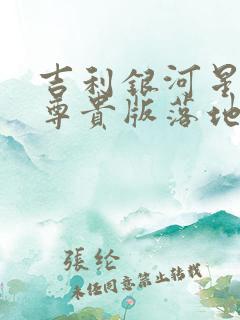 吉利銀河星
尊貴版落地
張纶
未经同意禁止转载